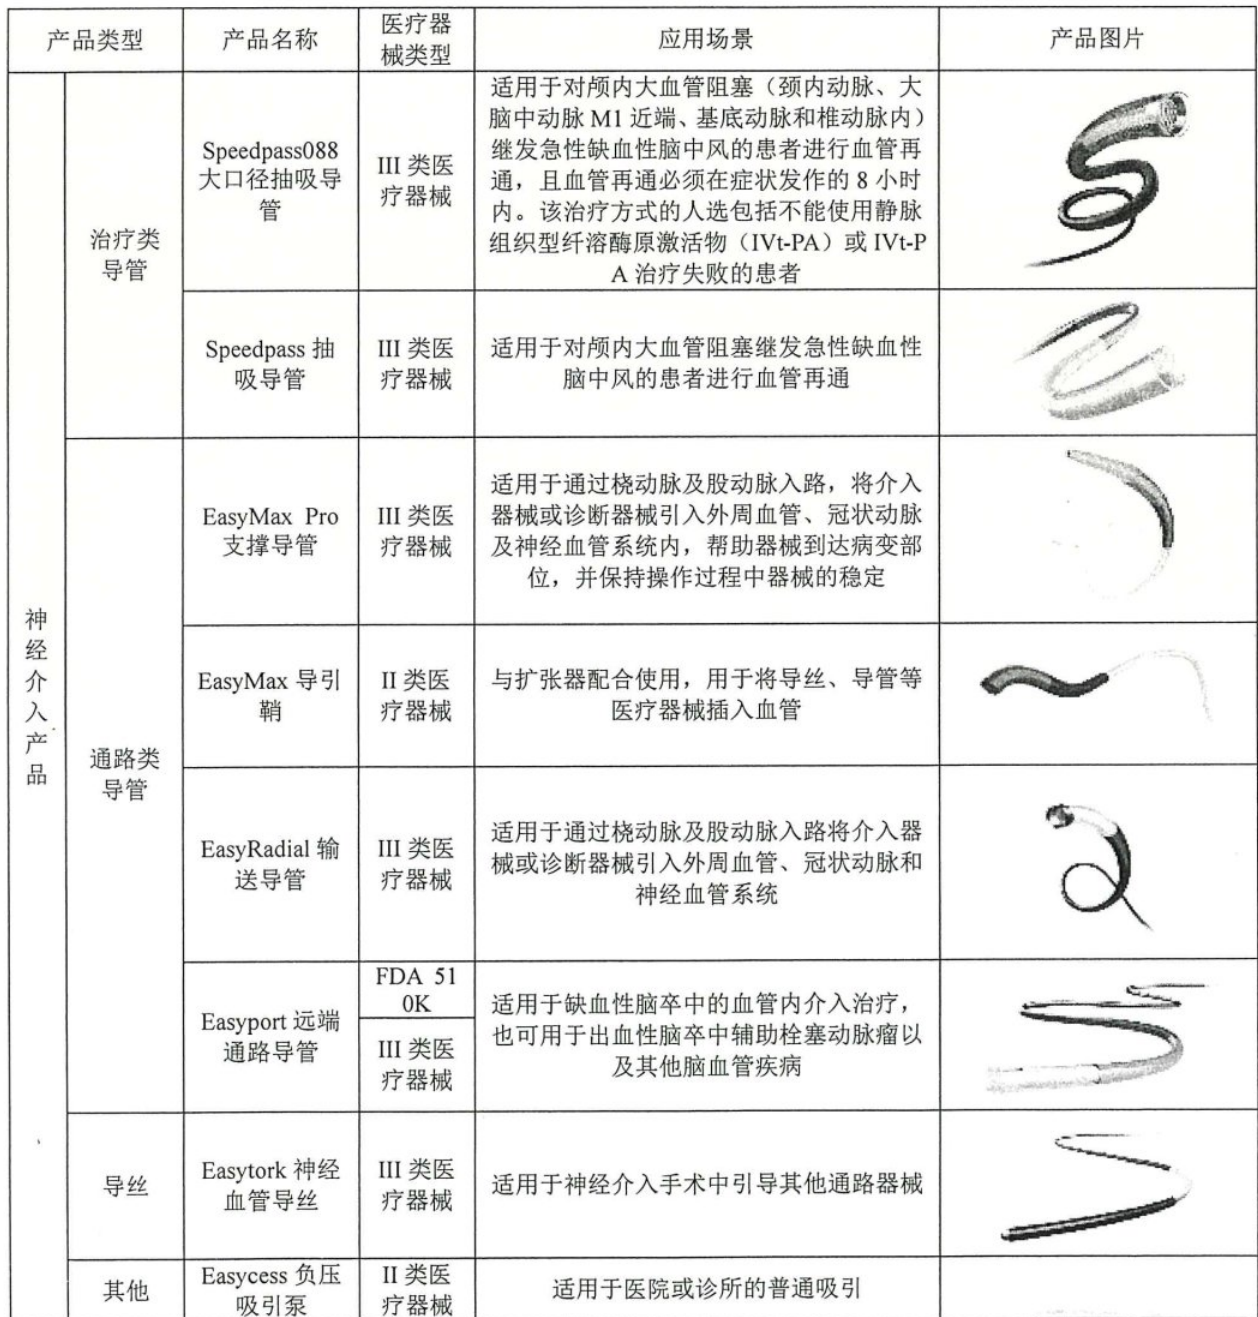 产品类型
产品名称
医疗器
械类型
应用场景
产品图片
神
经
介
入
产
品
治疗类
导管
Speedpass088
大口径抽吸导
管
III 类医
疗器械
适用于对颅内大血管阻塞（颈内动脉、大
脑中动脉 M1 近端、基底动脉和椎动脉内）
继发急性缺血性脑中风的患者进行血管再
通，且血管再通必须在症状发作的 8 小时
内。该治疗方式的人选包括不能使用静脉
组织型纤溶酶原激活物（IVt-PA）或 IVt-P
A 治疗失败的患者
Speedpass 抽
吸导管
III 类医
疗器械
适用于对颅内大血管阻塞继发急性缺血性
脑中风的患者进行血管再通
通路类
导管
EasyMax Pro
支撑导管
III 类医
疗器械
适用于通过桡动脉及股动脉入路，将介入
器械或诊断器械引入外周血管、冠状动脉
及神经血管系统内，帮助器械到达病变部
位，并保持操作过程中器械的稳定
EasyMax 导引
鞘
II 类医
疗器械
与扩张器配合使用，用于将导丝、导管等
医疗器械插入血管
EasyRadial 输
送导管
III 类医
疗器械
适用于通过桡动脉及股动脉入路将介入器
械或诊断器械引入外周血管、冠状动脉和
神经血管系统
Easyport 远端
通路导管
FDA 51
0K
III 类医
疗器械
适用于缺血性脑卒中的血管内介入治疗，
也可用于出血性脑卒中辅助栓塞动脉瘤以
及其他脑血管疾病
导丝
Easytork 神经
血管导丝
III 类医
疗器械
适用于神经介入手术中引导其他通路器械
其他
Easycess 负压
吸引泵
II 类医
疗器械
适用于医院或诊所的普通吸引